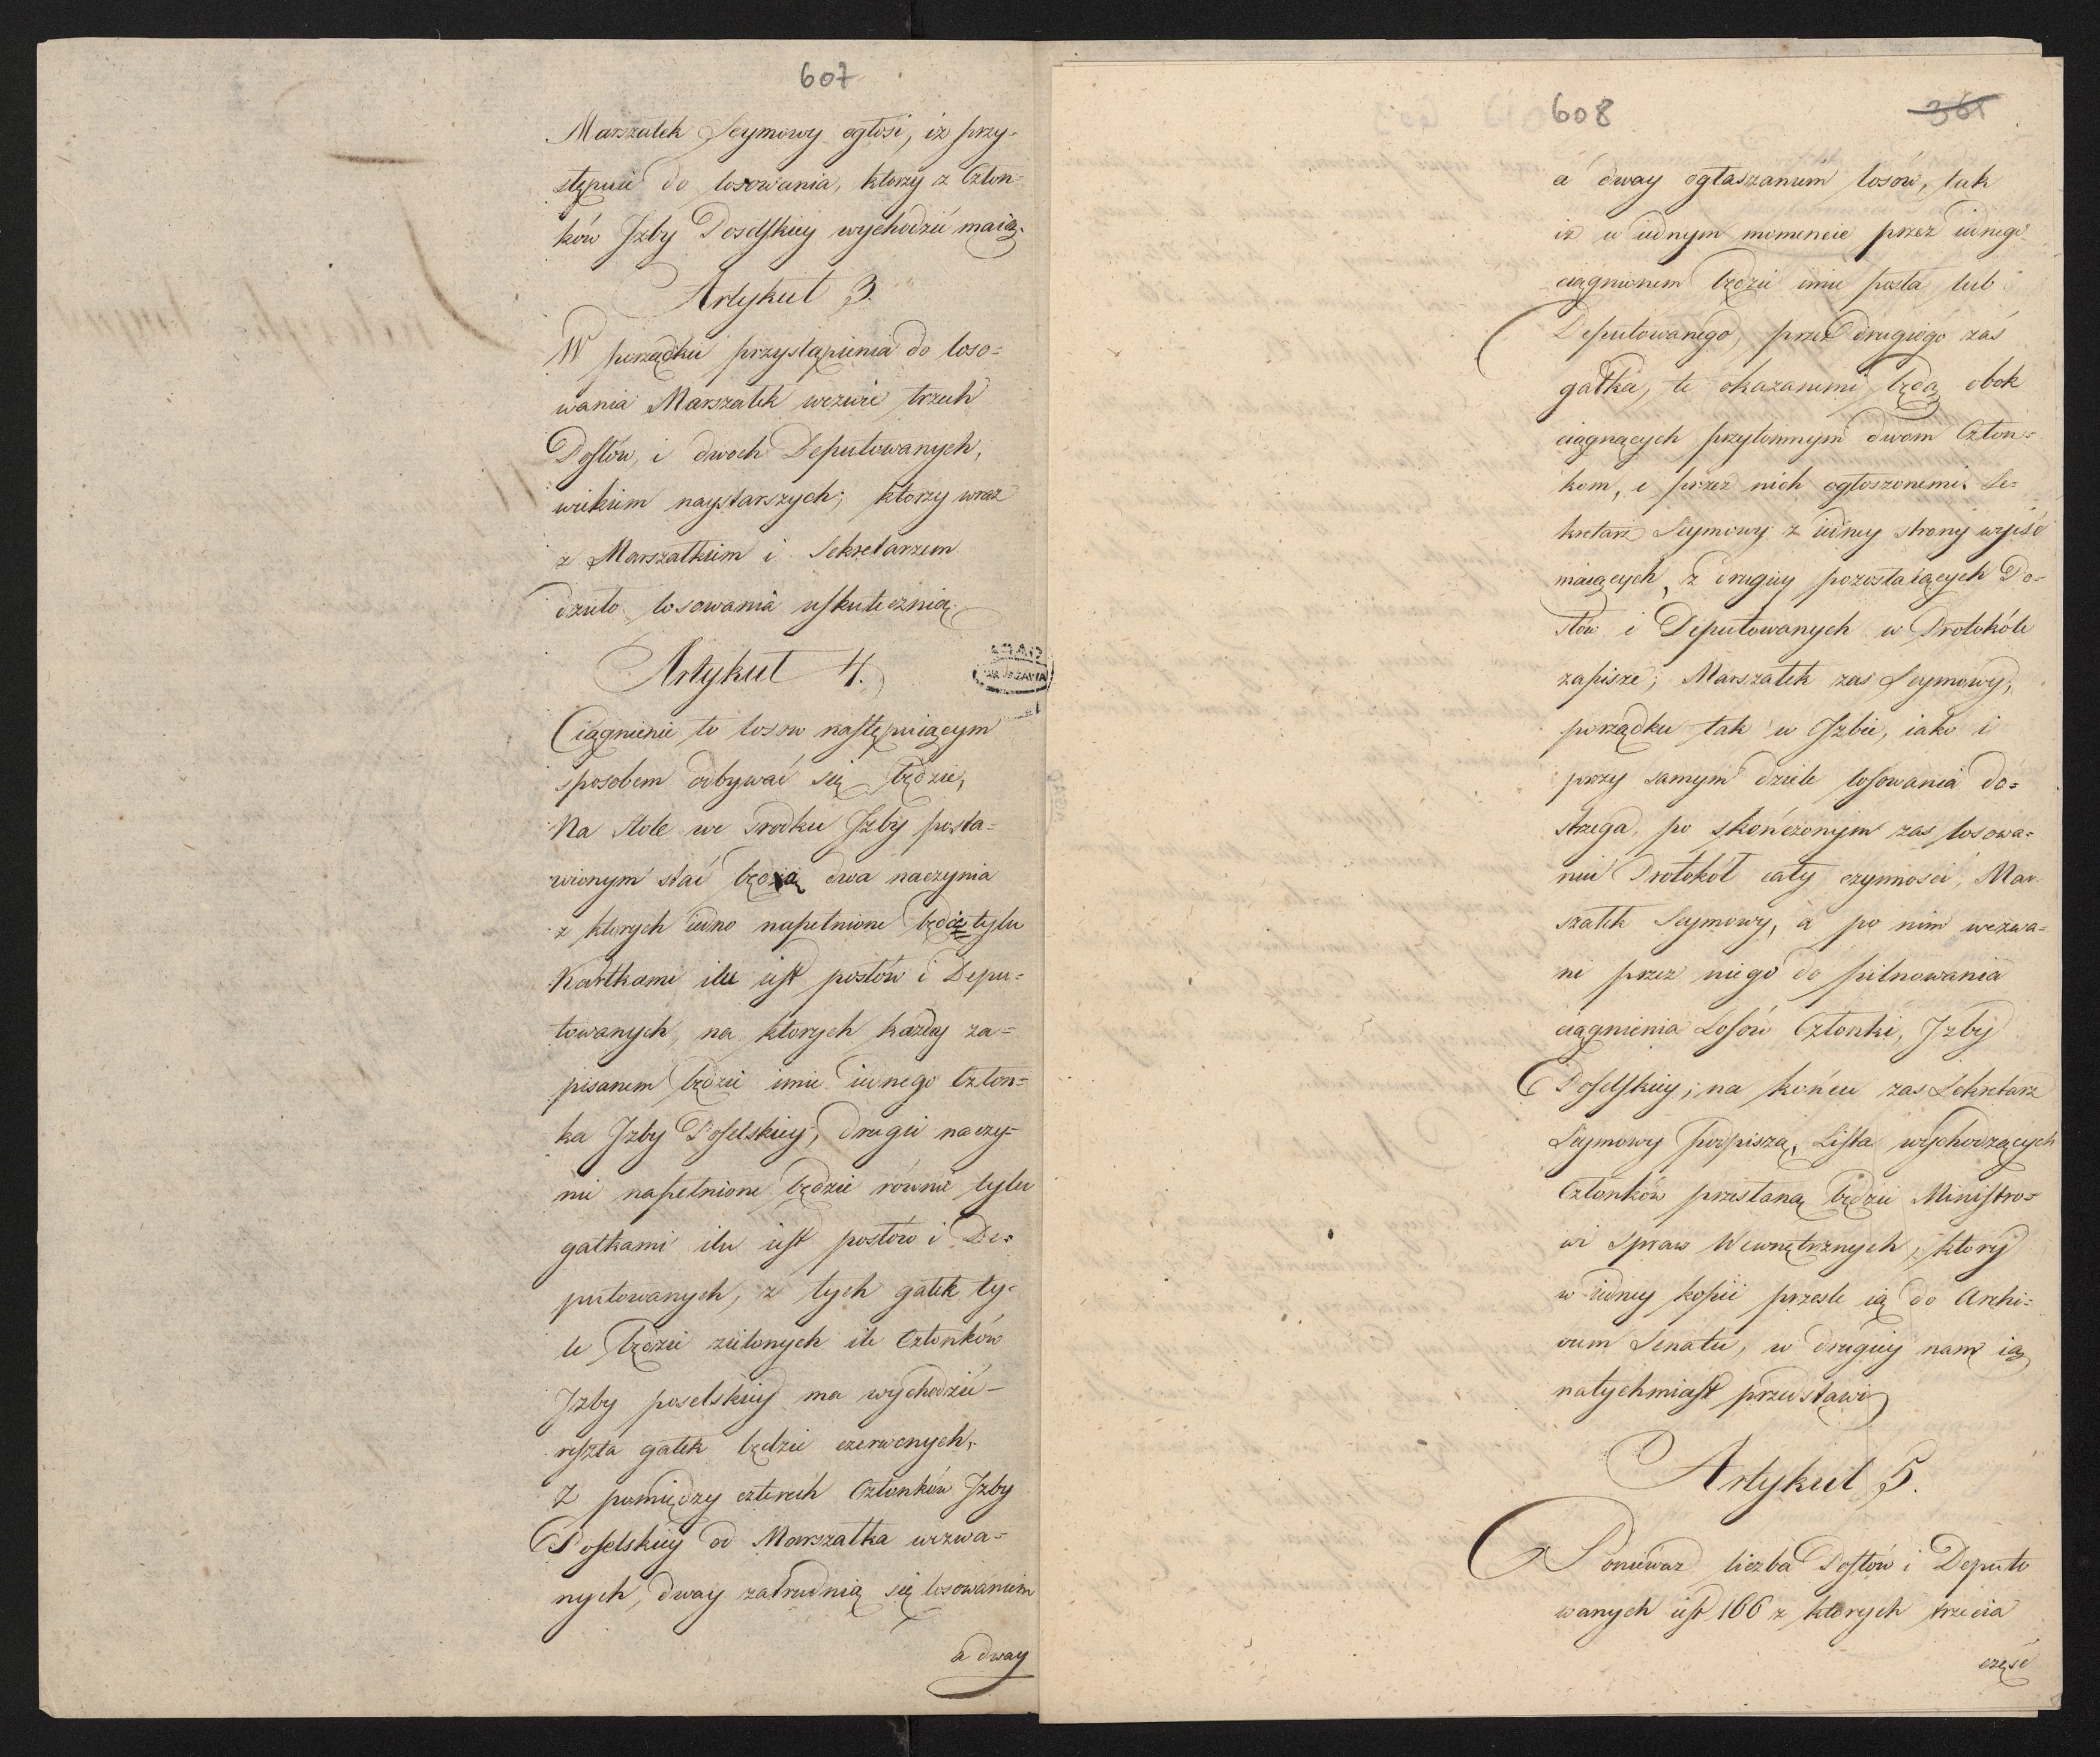 607
Marszałek Seymowy ogłosi, iż przy-
stępuie do losowania, ktorzy z Człon-
ków Izby Poselskiey wychodzić maią.
Artykuł 3.
W porządku przystąpienia do loso-
wania Marszałek wezwie trzech
Posłów, i dwoch Deputowanych,
wiekiem naystarszych; ktorzy wraz
z Marszałkiem i Sekretarzem
dzieło losowania uskutecznią.
Artykuł 4.
Ciągnienie to losow następuiącym
sposobem odbywać się będzie,
Na stole we srodku Izby posta-
wionym stać będą dwa naczynia
z ktorych iedno napełnione będzie tylu
Kartkami ilu iest posłów i Depu-
towanych, na ktorych każdey za-
pisanem będzie imie iednego Człon-
ka Izby Poselskiey, drugie naczy-
nie napełnione będzie równie tylu
gałkami ilu iest posłów i De-
putowanych, z tych gałek ty-
le będzie zielonych ile Członków
Izby poselskiey ma wychodzić -
reszta gałek będzie czerwonych.
Z pomiędzy czterech Członków Izby
Poselskiey od Marszałka wezwa-
nych, dway zatrudnią się losowaniem
a dway
608
361
a dway ogłaszaniem losów, tak
iż w iednym momencie przez iednego
ciągnionem będzie imie posła lub
Deputowanego, przez drugiego zaś
gałka, te okazanemi będą obok
ciągnących przytomnym dwom Człon-
kom, i przez nich ogłoszonemi. Se-
kretarz Seymowy z iedney strony wyiść
maiących, z drugiey pozostaiących Po-
słów i Deputowanych w Protokóle
zapisze; Marszałek zas Seymowy,
porządku tak w Izbie, iako i
przy samym dziele losowania do-
strzega, po skończonym zas losowa-
niu Protokół cały czynności, Mar-
szałek Seymowy, a po nim wezwa-
ni przez niego do pilnowania
ciągnienia Losów Członki, Izby
Poselskiey; na końcu zas Sekretarz
Seymowy podpiszą, Lista wychodzących
Członków przesłaną będzie Ministro-
wi Spraw Wewnętrznych, ktory
w iedney kopii prześle ią do Archi-
vum Senatu, w drugiey nam ią
natychmiast przedstawi
Artykuł 5.
Ponieważ liczba Posłów i Deputo
wanych iest 166 z ktorych trzecia
część